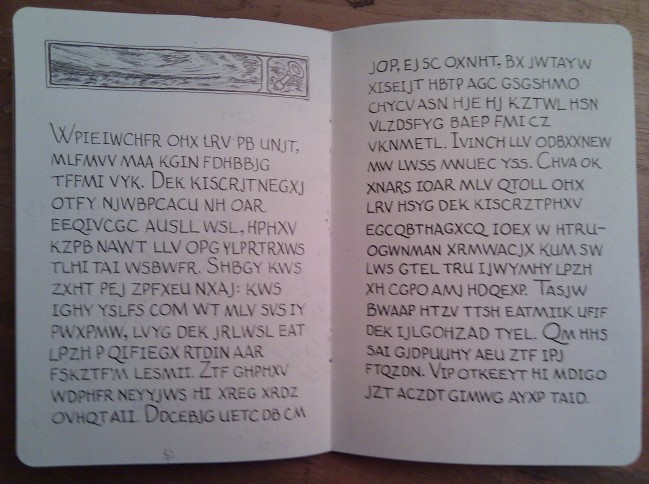 Wpieiwchfr ohx lrv pb unjt,
mlfmvv maa kgin fdhbbjg
tffmi vyk. Dek kiscrjtnegxj
otfy njwbpcacu nh oar
eeqivcgc ausll wsl, hphxv
kzpb nawt llv opg ylprtrxws
tlhi tai wsbwfr. Shbgy kws
zxht pej zpfxeu nxaj: kws
ighy yslfs com wt mlv svs iy
pwxpmw, lvyg dek jrlwsl eat
lpzh p qifiegx rtdin aar
fskztfm lesmii. Ztf ghphxv
wdphfr neyyjws hi xreg xrdz
ovhqtaii. Ddcebjg uetc db cm
jop, ej sc oxnht, bx jwtayw
xiseijt hbtp agc gsgshmo
chycv asn hje hj kztwl hsn
vlzdsfyg baep fmi cz
vknmetl. Ivinch llv odbxxnew
mw lwss mnuec yss. Chva ok
xnars ioar mlv qtoll ohx
lrv hsyg dek kiscrztphxv
egcqbthagxcq ioex w htru-
ogwnman xrmwacjx kum sw
lws gtel tru ijwymhy lpzh
xh cgpo amj hdqexp. Tasjw
bwaap htzv ttsh eatmiik ufif
dek ijlgohzad tyel. Qm hhs
sai gjdpuuhy aeu ztf ipj
ftqzdn. Vip otkeeyt hi mdigo
jzt aczdt gimwg ayxp taid.